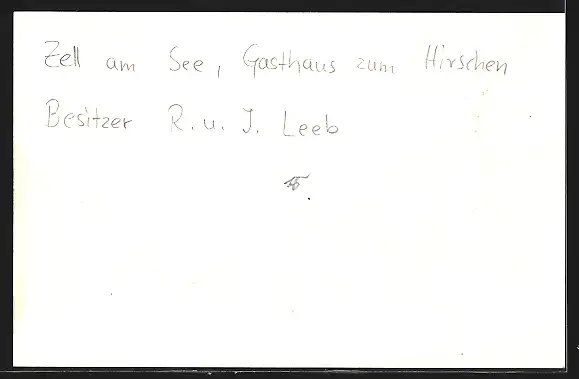 Zell am See, Gasthaus zum Hirschen
Besitzer R. u. J. Leeb